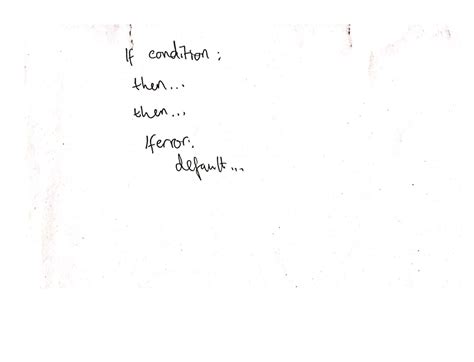 If condition;
then...
then...
Iferror:
default...